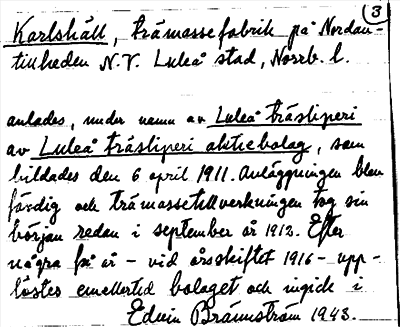 3
Karlshäll, trämassefabrik på Nordan-
tillheden N.V. Luleå stad, Norrb. l.
anlades, under namn av Luleå träsliperi
av Luleå träsliperi aktiebolag, som
bildades den 6 april 1911. Anläggningen blev
färdig och trämassetillverkningen tog sin
början redan i september år 1912. Efter
några få år – vid årsskiftet 1916 – upp-
löstes emellertid bolaget och ingick i
Edvin Brännström 1943.